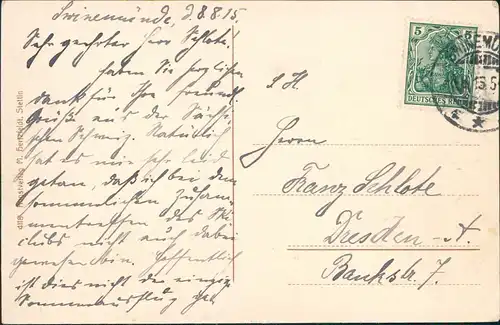 Swinemünde, d. 8.8.15.
Sehr geehrter Herr Schlote.
haben Sie herzlichen
Dank für Ihre freundl.
Grüße aus der Sächsi-
schen Schweiz. Natürlich
hat es mir sehr leid
getan, daß ich bei dem
sommerlichen Zusam-
mentreffen des Ski-
clubs nicht auch dabei
gewesen bin. Hoffentlich
ist dies nicht der einzige
Sommerausflug
5
DEUTSCHES REICH
S. H.
Herrn
Franz Schlote
Dresden-A.
Bankstr. 7.